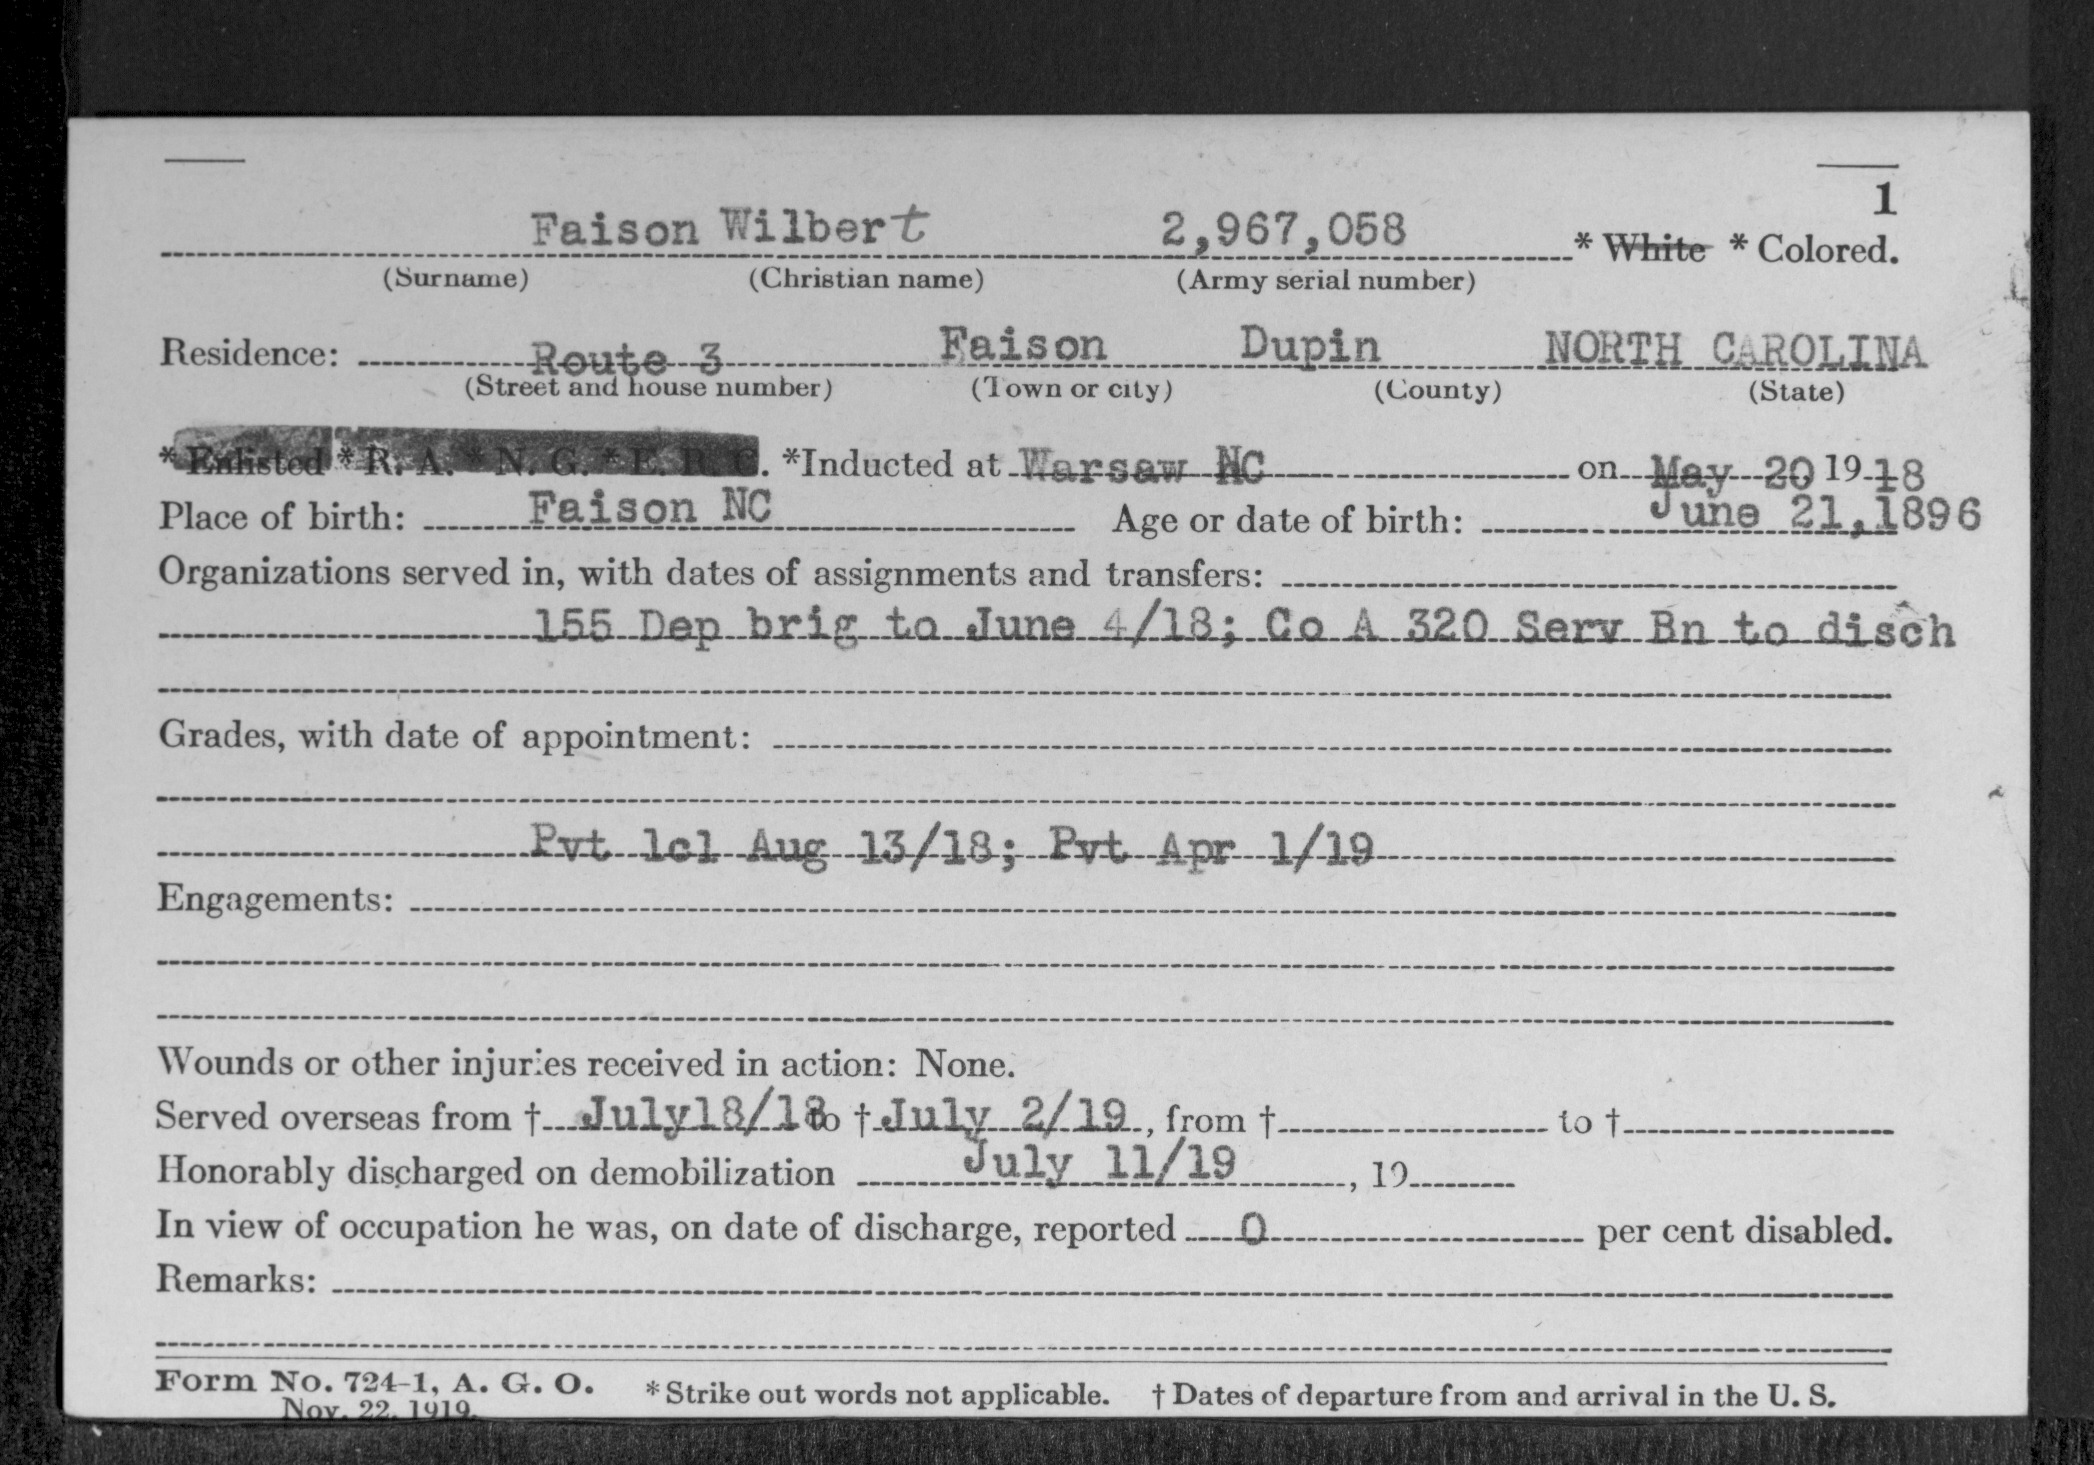 1
Faison Wilbert 2,967,058 * White * Colored.
(Surname) (Christian name) (Army serial number)
Residence: Route 3 Faison Dupin NORTH CAROLINA
(Street and house number) (Town or city) (County) (State)
* Enlisted * R. A. * N. G. * E. R. C. *Inducted at Warsaw NC on May 20, 19 18
Place of birth: Faison NC Age or date of birth: June 21,1896
Organizations served in, with dates of assignments and transfers:
155 Dep brig to June 4/18; Co A 320 Serv Bn to disch
Grades, with date of appointment:
Pvt 1cl Aug 13/18; Pvt Apr 1/19
Engagements:
Wounds or other injuries received in action: None.
Served overseas from † July18/18 to † July 2/19, from † to †
Honorably discharged on demobilization July 11/19, 19
In view of occupation he was, on date of discharge, reported 0 per cent disabled.
Remarks:
Form No. 724-1, A. G. O. * Strike out words not applicable. † Dates of departure from and arrival in the U. S.
Nov. 22, 1919.